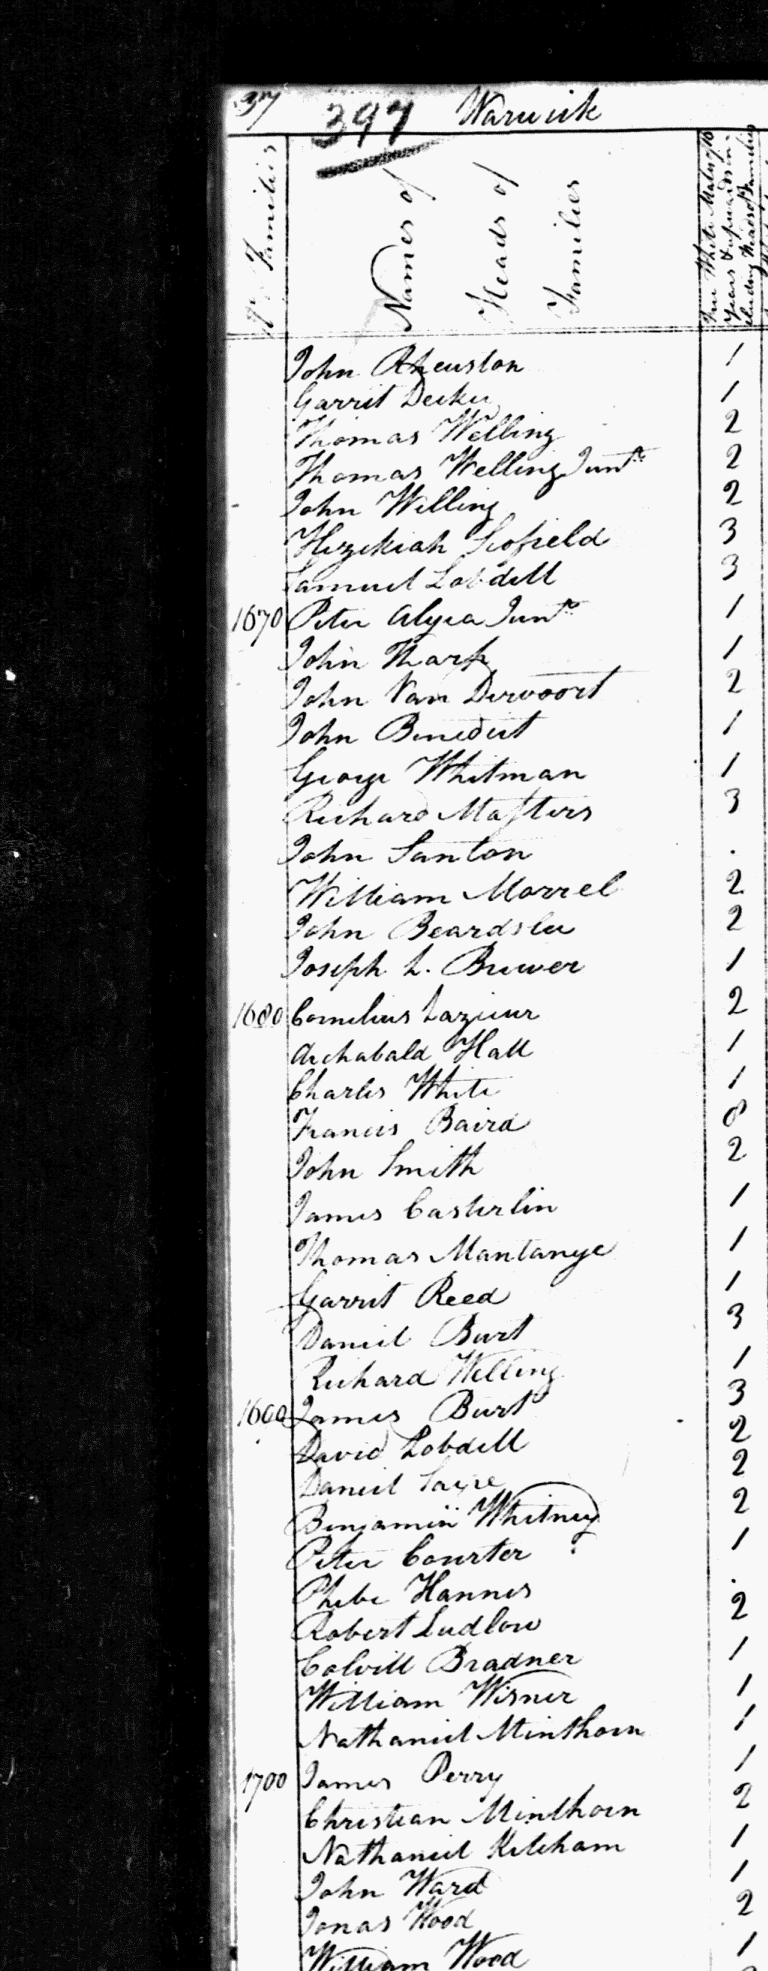 37 397 Warwick
No. Families
Names of
Heads of
Families
Free White Males of 16
Years & upwards in-
cluding Heads of Families
John Rheuston 1
Garrit Decker 1
Thomas Welling 2
Thomas Welling Junr. 2
John Welling 2
Hezekiah Scofield 3
Samuel Lobdell 3
1670 Peter Alyea Junr. 1
John Tharp 1
John Van Dervoort 2
John Benedict 1
George Whitman 1
Richard Masters 3
John Santon .
William Morrel 2
John Beardslee 2
Joseph L. Brewer 1
1680 Cornelius Lazieur 2
Archabald Hall 1
Charles White 1
Francis Baird 8
John Smith 2
James Casterlin 1
Thomas Mantanye 1
Garrit Reed 1
Daniel Burt 3
Richard Welling 1
1690 James Burt 3
David Lobdell 2
Daniel Sayre 2
Benjamin Whitney 2
Peter Courter 1
Phebe Hannes .
Robert Ludlow 2
Colvill Bradner 1
William Wisner 1
Nathaniel Minthorn 1
1700 James Perry 1
Christian Minthorn 2
Nathaniel Ketcham 1
John Ward 1
Jonas Wood 2
William Wood 1